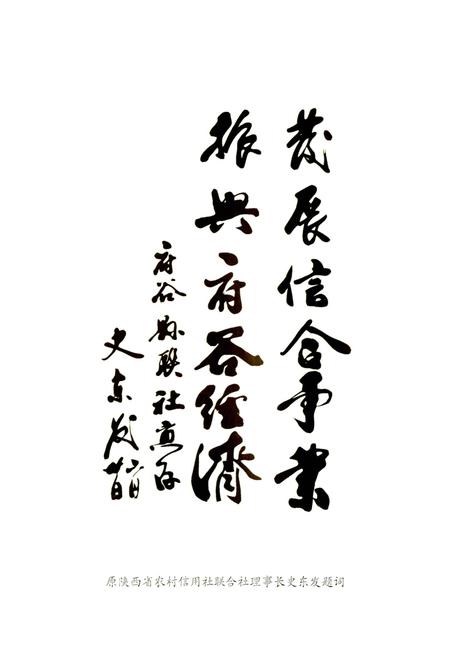 發展信合事业
振興府谷经濟
府谷县联社惠存
史东发
原陕西省农村信用社联合社理事长史东发题词